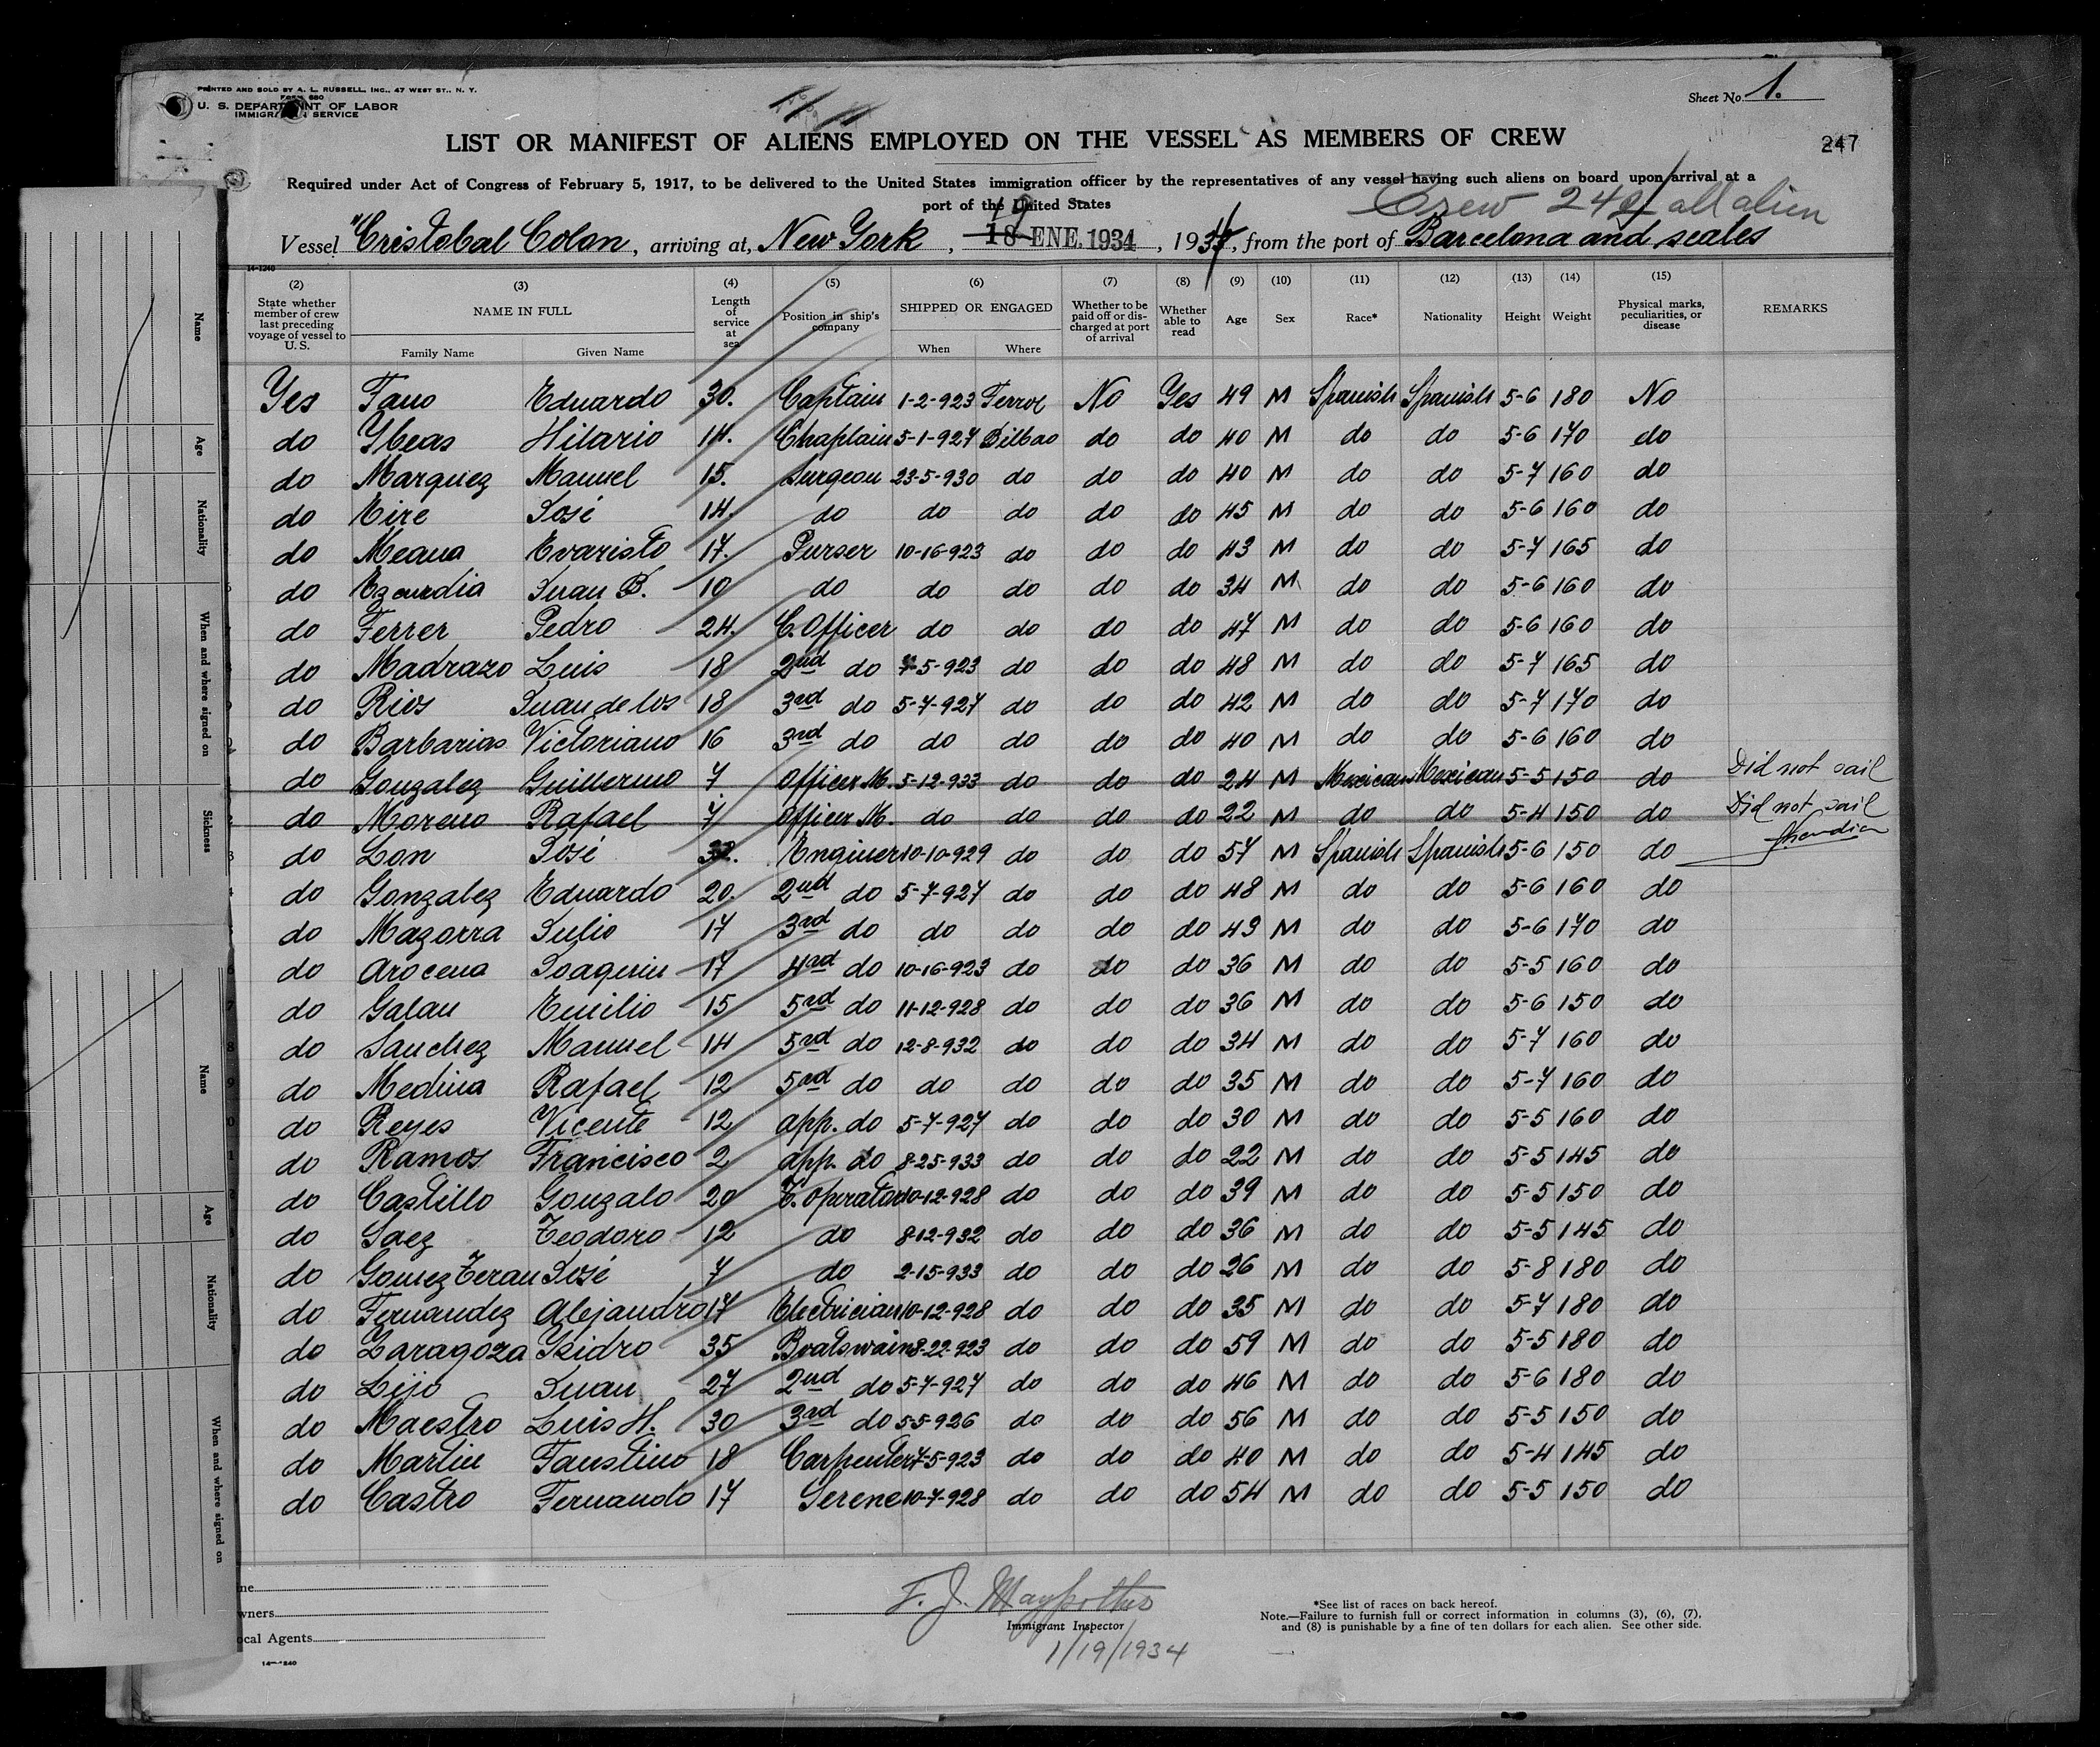 PRINTED AND SOLD BY A. L. RUSSELL, INC., 47 WEST ST., N. Y.
FORM 680
U. S. DEPARTMENT OF LABOR
IMMIGRATION SERVICE
Sheet No. 1.
LIST OR MANIFEST OF ALIENS EMPLOYED ON THE VESSEL AS MEMBERS OF CREW
247
Required under Act of Congress of February 5, 1917, to be delivered to the United States immigration officer by the representatives of any vessel having such aliens on board upon arrival at a
port of the United States
Crew 242 all alien
Vessel "Cristobal Colon, arriving at, New York, 19 18 ENE. 1934, 1934, from the port of Barcelona and scales
14-1240
(2) (3) (4) (5) (6) (7) (8) (9) (10) (11) (12) (13) (14) (15)
State whether member of crew last preceding voyage of vessel to U. S. NAME IN FULL Family Name Given Name Length of service at sea Position in ship's company SHIPPED OR ENGAGED When Where Whether to be paid off or discharged at port of arrival Whether able to read Age Sex Race* Nationality Height Weight Physical marks, peculiarities, or disease REMARKS
Yes Fano Eduardo 30. Captain 1-2-923 Ferrol No Yes 49 M Spanish Spanish 5-6 180 No
do Ybeas Hilario 14. Chaplain 5-1-927 Bilbao do do 40 M do do 5-6 170 do
do Marquez Manuel 15. Surgeon 23-5-930 do do do 40 M do do 5-7 160 do
do Eire José 14. do do do do do 45 M do do 5-6 160 do
do Meana Evaristo 17. Purser 10-16-923 do do do 43 M do do 5-7 165 do
do Ezcurdia Juan B. 10 do do do do do 34 M do do 5-6 160 do
do Ferrer Pedro 24. C. Officer do do do do 47 M do do 5-6 160 do
do Madrazo Luis 18 2nd do 7-5-923 do do do 48 M do do 5-7 165 do
do Rios Juan de los 18 3rd do 5-7-927 do do do 42 M do do 5-7 170 do
do Barbarias Victoriano 16 3rd do do do do do 40 M do do 5-6 160 do
do Gonzalez Guillermo 7 Officer M. 5-12-933 do do do 24 M Mexican Mexican 5-5 150 do Did not sail
do Moreno Rafael 7 Officer M. do do do do 22 M do do 5-4 150 do Did not sail
do Lon José 32. Enginer 10-10-929 do do do 57 M Spanish Spanish 5-6 150 do
do Gonzalez Eduardo 20. 2nd do 5-7-927 do do do 48 M do do 5-6 160 do
do Mazorra Julio 17 3rd do do do do do 43 M do do 5-6 170 do
do Arocena Joaquin 17 4rd do 10-16-923 do do do 36 M do do 5-5 160 do
do Galan Emilio 15 5rd do 11-12-928 do do do 36 M do do 5-6 150 do
do Sanchez Manuel 14 5rd do 12-8-932 do do do 34 M do do 5-7 160 do
do Medina Rafael 12 5rd do do do do do 35 M do do 5-7 160 do
do Reyes Vicente 12 app. do 5-7-927 do do do 30 M do do 5-5 160 do
do Ramos Francisco 2 app. do 8-25-933 do do do 22 M do do 5-5 145 do
do Castillo Gonzalo 20 T. Operator 10-12-928 do do do 39 M do do 5-5 150 do
do Saez Teodoro 12 do 8-12-932 do do do 36 M do do 5-5 145 do
do Gomez Teran José 7 do 2-15-933 do do do 26 M do do 5-8 180 do
do Fernandez Alejandro 17 Electrician 10-12-928 do do do 35 M do do 5-7 180 do
do Zaragoza Ysidro 35 Boatswain 8-22-923 do do do 59 M do do 5-5 180 do
do Lijo Juan 27 2nd do 5-7-927 do do do 46 M do do 5-6 180 do
do Maestro Luis H. 30 3rd do 5-5-926 do do do 56 M do do 5-5 150 do
do Martin Faustino 18 Carpenter 7-5-923 do do do 40 M do do 5-4 145 do
do Castro Fernando 17 Serene 10-7-928 do do do 54 M do do 5-5 150 do
Name
Age
Nationality
When and where signed on
Sickness
Name
Age
Nationality
When and where signed on
wners
ocal Agents
F. J.
Immigrant Inspector
1/19/1934
*See list of races on back hereof.
Note.—Failure to furnish full or correct information in columns (3), (6), (7),
and (8) is punishable by a fine of ten dollars for each alien. See other side.